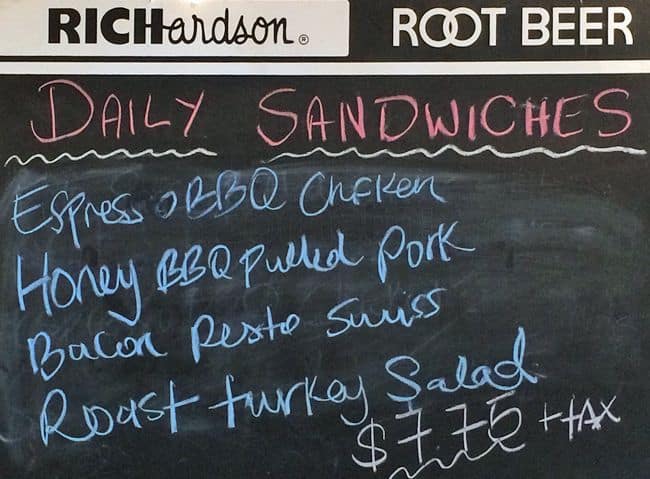 RICHardson® ROOT BEER
DAILY SANDWICHES
Espresso BBQ Chicken
Honey BBQ pulled Pork
Bacon Pesto Swiss
Roast turkey Salad
$7.75 + TAX